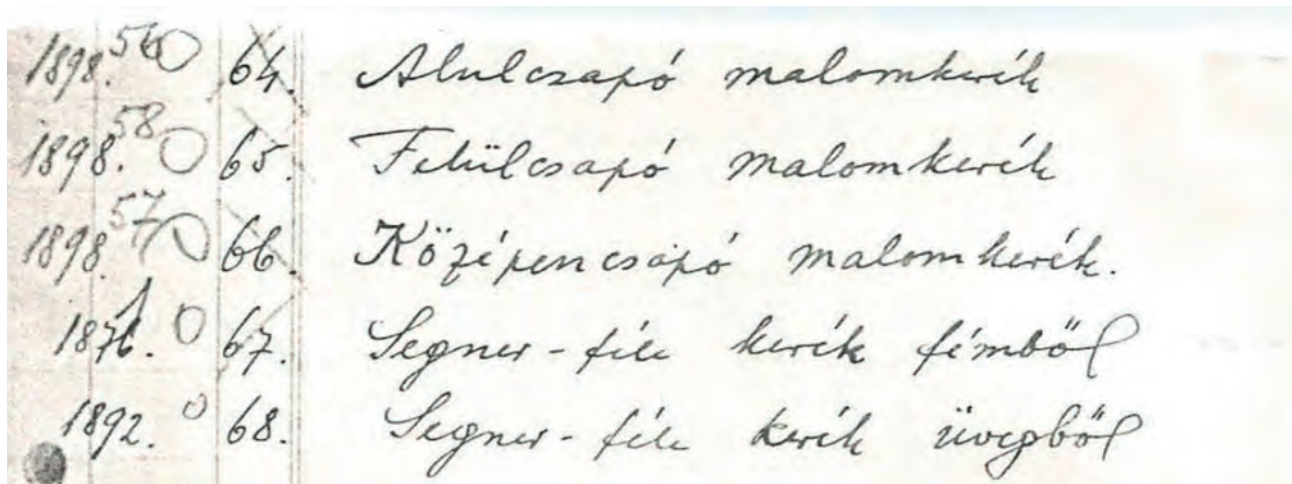 1898. 56 64. Alulcsapó malomkerék
1898. 58 65. Felülcsapó malomkerék
1898. 57 66. Középencsapó malomkerék.
1876. 67. Segner-féle kerék fémből
1892. 68. Segner-féle kerék üvegből